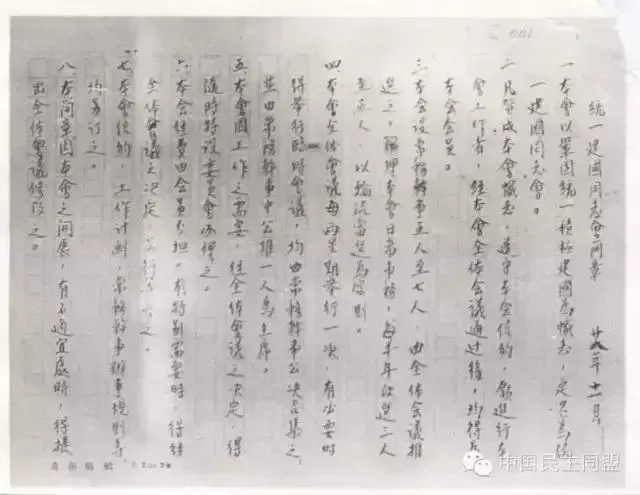 001
統一建國同志會简章 廿八年十一月
一 本會以鞏固統一積極建國為幟志，定名為統
一建國同志會。
二 凡贊成本會幟志，遵守本会信約，願進行本
會工作者，経本會全体会議通過後，均得為
本會会員。
三 本会設常務幹事五人至七人，由全体會議推
選之，辦理本會日常事務，每半年改選二人
至三人，以輪流當選為原則。
四 本會全体會議每兩星期舉行一次，有必要時
得舉行臨時會議，均由常務幹事公决召集之，
並由常務幹事中公推一人為主席。
五 本會因工作之需要，経全体會議之决定，得
隨時特設委員會办理之。
六 本会経費由会員分担。有特別需要時，得経
全体會議之决定，另行之。
七 本會信約，工作计劃，常務幹事辦事規則等，
均另订之。
八 本简章因本會之開展，有不適宜處時，得提
出全体會議修改之。
中国民主同盟